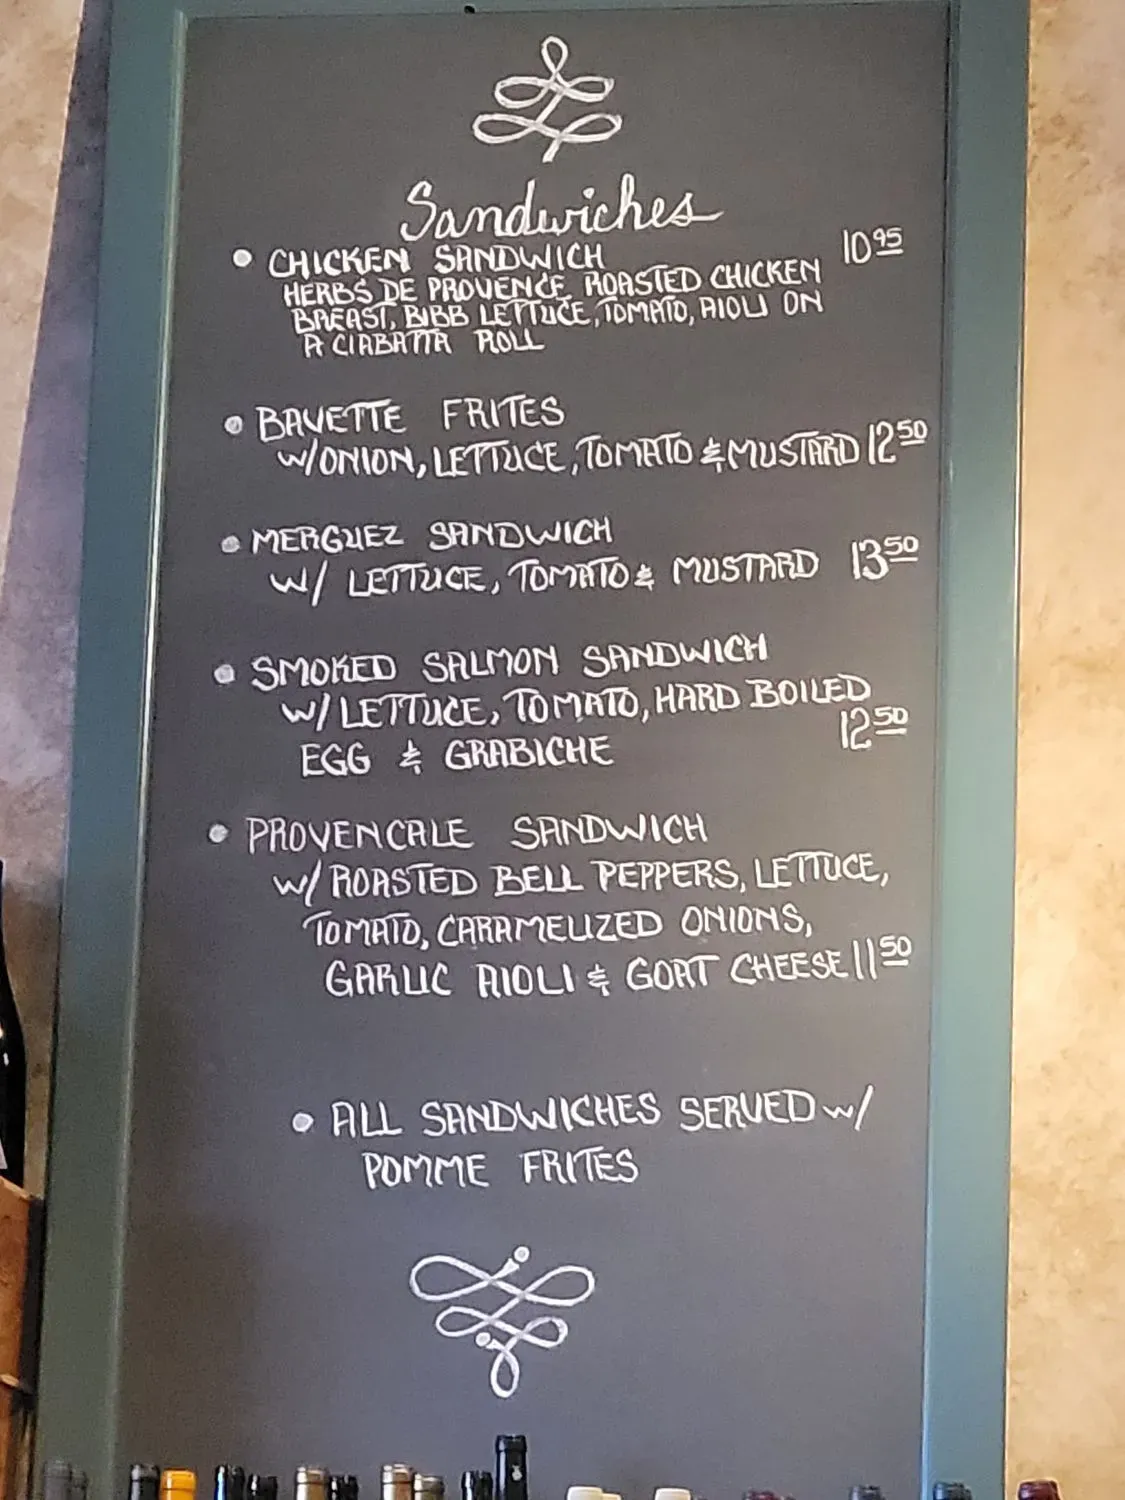 Sandwiches
CHICKEN SANDWICH 10 95
HERBS DE PROVENCE ROASTED CHICKEN
BREAST, BIBB LETTUCE, TOMATO, AIOLI ON
A CIABATTA ROLL
BAVETTE FRITES
W/ONION, LETTUCE, TOMATO & MUSTARD 12 50
MERGUEZ SANDWICH
W/ LETTUCE, TOMATO & MUSTARD 13 50
SMOKED SALMON SANDWICH
W/ LETTUCE, TOMATO, HARD BOILED
EGG & GRABICHE 12 50
PROVENCALE SANDWICH
W/ ROASTED BELL PEPPERS, LETTUCE,
TOMATO, CARAMELIZED ONIONS,
GARLIC AIOLI & GOAT CHEESE 11 50
ALL SANDWICHES SERVED W/
POMME FRITES